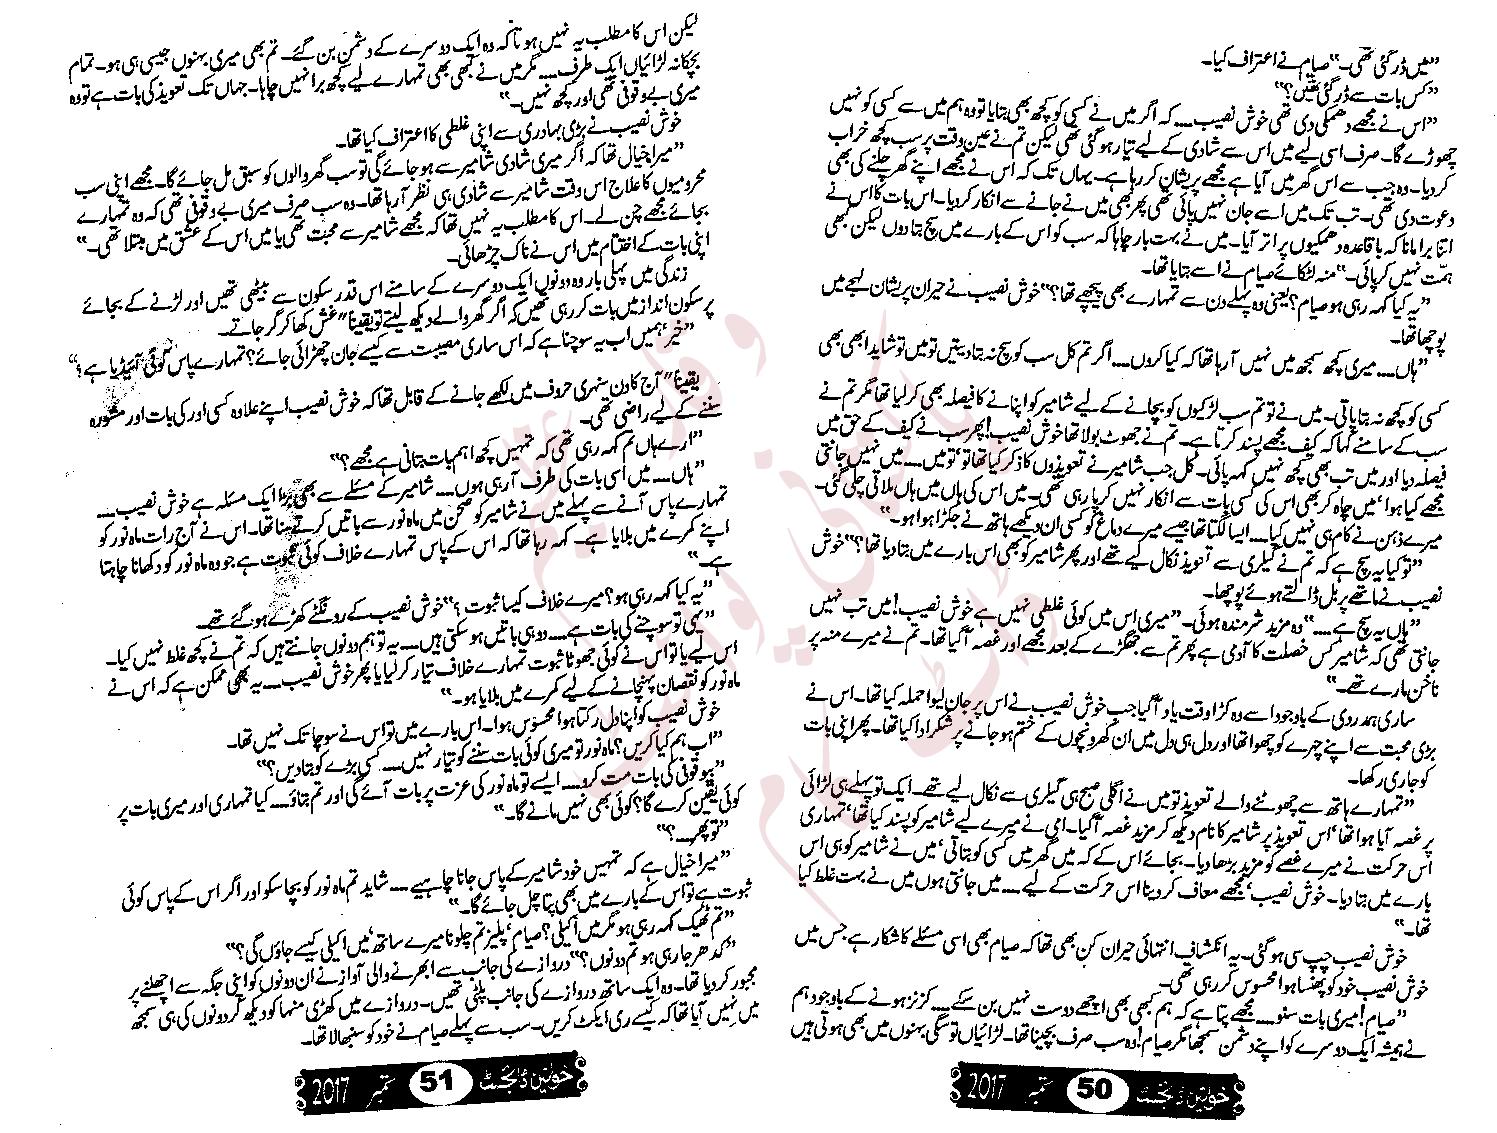 ”میں ڈر گئی تھی۔“ صیام نے اعتراف کیا۔
”کس بات سے ڈر گئی تھیں؟“
”اس نے مجھے دھمکی دی تھی خوش نصیب۔۔۔ کہ اگر میں نے کسی کو کچھ بھی بتایا تو وہ ہم میں سے کسی کو نہیں
چھوڑے گا۔ صرف اسی لیے میں اس سے شادی کے لیے تیار ہو گئی تھی لیکن تم نے عین وقت پر سب کچھ خراب
کر دیا۔ وہ جب سے اس گھر میں آیا ہے مجھے پریشان کر رہا ہے۔ یہاں تک کہ اس نے مجھے اپنے گھر چلنے کی بھی
دعوت دی تھی۔ تب تک میں اسے جان نہیں پائی تھی پھر بھی میں نے جانے سے انکار کر دیا۔ اس بات کا اس نے
اتنا برا مانا کہ باقاعدہ دھمکیوں پر اتر آیا۔ میں نے بہت بار چاہا کہ سب کو اس کے بارے میں سچ بتا دوں لیکن کبھی
ہمت نہیں کر پائی۔“ منہ لٹکائے صیام نے اسے بتایا تھا۔
”یہ کیا کہہ رہی ہو صیام؟ یعنی وہ پہلے دن سے تمہارے بھی پیچھے تھا؟“ خوش نصیب نے حیران پریشان لہجے میں
پوچھا تھا۔
”ہاں۔۔۔ میری کچھ سمجھ میں نہیں آ رہا تھا کہ کیا کروں۔۔۔ اگر تم کل سب کو سچ نہ بتا دیتیں تو میں تو شاید ابھی بھی
کسی کو کچھ نہ بتا پاتی۔ میں نے تو تم سب لڑکیوں کو بچانے کے لیے شامیر کو اپنانے کا فیصلہ بھی کر لیا تھا مگر تم نے
سب کے سامنے کہا کہ کیف مجھے پسند کرتا ہے۔ تم نے جھوٹ بولا تھا خوش نصیب! پھر سب نے کیف کے حق میں
فیصلہ دیا اور میں تب بھی کچھ نہیں کہہ پائی۔ کل جب شامیر نے تعویذوں کا ذکر کیا تھا تو‘ تو میں۔۔۔ میں نہیں جانتی
مجھے کیا ہوا‘ میں چاہ کر بھی اس کی کسی بات سے انکار نہیں کر پا رہی تھی۔ میں اس کی ہاں میں ہاں ملاتی چلی گئی۔
میرے ذہن نے کام ہی نہیں کیا۔۔۔ ایسا لگتا تھا جیسے میرے دماغ کو کسی ان دیکھے ہاتھ نے جکڑا ہوا ہو۔“
”تو کیا یہ سچ ہے کہ تم نے گیلری سے تعویذ نکال لیے تھے اور پھر شامیر کو بھی اس بارے میں بتا دیا تھا؟“ خوش
نصیب نے ماتھے پر بل ڈالتے ہوئے پوچھا۔
”ہاں یہ سچ ہے۔۔۔“ وہ مزید شرمندہ ہوئی۔ ”میری اس میں کوئی غلطی نہیں ہے خوش نصیب! میں تب نہیں
جانتی تھی کہ شامیر کس خصلت کا آدمی ہے پھر تم سے جھگڑے کے بعد مجھے اور غصہ آ گیا تھا۔ تم نے میرے منہ پر
ناخن مارے تھے۔“
ساری ہمدردی کے باوجود اسے وہ کڑا وقت یاد آ گیا جب خوش نصیب نے اس پر جان لیوا حملہ کیا تھا۔ اس نے
بڑی محبت سے اپنے چہرے کو چھوا تھا اور دل ہی دل میں ان کھرونچوں کے ختم ہو جانے پر شکر ادا کیا تھا۔ پھر اپنی بات
کو جاری رکھا۔
”تمہارے ہاتھ سے چھوٹنے والے تعویذ تو میں نے اگلی صبح ہی گیلری سے نکال لیے تھے۔ ایک تو پہلے ہی لڑائی
پر غصہ آیا ہوا تھا‘ اس تعویذ پر شامیر کا نام دیکھ کر مزید غصہ آ گیا۔ امی نے میرے لیے شامیر کو پسند کیا تھا‘ تمہاری
اس حرکت نے میرے غصے کو مزید بڑھا دیا۔ بجائے اس کے کہ میں گھر میں کسی کو بتاتی‘ میں نے شامیر کو ہی اس
بارے میں بتا دیا۔ خوش نصیب‘ مجھے معاف کر دینا اس حرکت کے لیے۔۔۔ میں جانتی ہوں میں نے بہت غلط کیا
تھا۔“
خوش نصیب چپ سی ہو گئی۔ یہ انکشاف انتہائی حیران کن بھی تھا کہ صیام بھی اسی مسئلے کا شکار ہے جس میں
خوش نصیب خود کو پھنسا ہوا محسوس کر رہی تھی۔
”صیام! میری بات سنو۔۔۔ مجھے پتا ہے کہ ہم کبھی بھی اچھے دوست نہیں بن سکے۔۔۔ کزنز ہونے کے باوجود ہم
نے ہمیشہ ایک دوسرے کو اپنے دشمن سمجھا مگر صیام! وہ سب صرف بچپنا تھا۔ لڑائیاں تو سگی بہنوں میں بھی ہوتی ہیں
خواتین ڈائجسٹ 50 ستمبر 2017
لیکن اس کا مطلب یہ نہیں ہوتا کہ وہ ایک دوسرے کے دشمن بن گئے۔ تم بھی میری بہنوں جیسی ہی ہو۔ تمام
بچکانہ لڑائیاں ایک طرف۔۔۔ مگر میں نے کبھی بھی تمہارے لیے کچھ برا نہیں چاہا۔ جہاں تک تعویذ کی بات ہے تو وہ
میری بے وقوفی تھی اور کچھ نہیں۔“
خوش نصیب نے بڑی بہادری سے اپنی غلطی کا اعتراف کیا تھا۔
”میرا خیال تھا کہ اگر میری شادی شامیر سے ہو جائے گی تو سب گھر والوں کو سبق مل جائے گا۔ مجھے اپنی سب
محرومیوں کا علاج اس وقت شامیر سے شادی ہی نظر آ رہا تھا۔ وہ سب صرف میری بے وقوفی تھی کہ وہ تمہارے
بجائے مجھے چن لے۔ اس کا مطلب یہ نہیں تھا کہ مجھے شامیر سے محبت تھی یا میں اس کے عشق میں مبتلا تھی۔“
اپنی بات کے اختتام میں اس نے ناک چڑھائی۔
زندگی میں پہلی بار وہ دونوں ایک دوسرے کے سامنے اس قدر سکون سے بیٹھی تھیں اور لڑنے کے بجائے
پر سکون انداز میں بات کر رہی تھیں کہ اگر گھر والے دیکھ لیتے تو یقیناً“ غش کھا کر گر جاتے۔
”خیر‘ ہمیں اب یہ سوچنا ہے کہ اس ساری مصیبت سے کیسے جان چھڑائی جائے؟ تمہارے پاس کوئی آئیڈیا ہے؟“
یقیناً“ آج کا دن سنہری حروف میں لکھے جانے کے قابل تھا کہ خوش نصیب اپنے علاوہ کسی اور کی بات اور مشورہ
سننے کے لیے راضی تھی۔
”ارے ہاں تم کہہ رہی تھی کہ تمہیں کچھ اہم بات بتانی ہے مجھے؟“
”ہاں۔۔۔ میں اسی بات کی طرف آ رہی ہوں۔۔۔ شامیر کے مسئلے سے بھی بڑا ایک مسئلہ ہے خوش نصیب۔۔۔
تمہارے پاس آنے سے پہلے میں نے شامیر کو صحن میں ماہ نور سے باتیں کرتے سنا تھا۔ اس نے آج رات ماہ نور کو
اپنے کمرے میں بلایا ہے۔ کہہ رہا تھا کہ اس کے پاس تمہارے خلاف کوئی ثبوت ہے جو وہ ماہ نور کو دکھانا چاہتا
ہے۔“
”یہ کیا کہہ رہی ہو؟ میرے خلاف کیسا ثبوت؟“ خوش نصیب کے رونگٹے کھڑے ہو گئے تھے۔
”یہی تو سوچنے کی بات ہے۔۔۔ دو ہی باتیں ہو سکتی ہیں۔۔۔ یہ تو ہم دونوں جانتے ہیں کہ تم نے کچھ غلط نہیں کیا۔
اس لیے یا تو اس نے کوئی جھوٹا ثبوت تمہارے خلاف تیار کر لیا یا پھر خوش نصیب۔۔۔ یہ بھی ممکن ہے کہ اس نے
ماہ نور کو نقصان پہنچانے کے لیے کمرے میں بلایا ہو۔“
خوش نصیب کو اپنا دل رکتا ہوا محسوس ہوا۔ اس بارے میں تو اس نے سوچا تک نہیں تھا۔
”اب ہم کیا کریں؟ ماہ نور تو میری کوئی بات سننے کو تیار نہیں۔۔۔ کسی بڑے کو بتا دیں؟“
”بیوقوفی کی بات مت کرو۔۔۔ ایسے تو ماہ نور کی عزت پر بات آئے گی اور تم بتاؤ۔۔۔ کیا تمہاری اور میری بات پر
کوئی یقین کرے گا؟ کوئی بھی نہیں مانے گا۔“
”تو پھر۔۔۔؟“
”میرا خیال ہے کہ تمہیں خود شامیر کے پاس جانا چاہیے۔۔۔ شاید تم ماہ نور کو بچا سکو اور اگر اس کے پاس کوئی
ثبوت ہے تو اس کے بارے میں بھی پتا چل جائے گا۔“
”تم ٹھیک کہہ رہی ہو مگر میں اکیلی؟ صیام‘ پلیز تم چلو نا میرے ساتھ‘ میں اکیلی کیسے جاؤں گی؟“
”کدھر جا رہی ہو تم دونوں؟“ دروازے کی جانب سے ابھرنے والی آواز نے ان دونوں کو اپنی جگہ سے اچھلنے پر
مجبور کر دیا تھا۔ وہ ایک ساتھ دروازے کی جانب پلٹی تھیں۔ دروازے میں کھڑی منہا کو دیکھ کر دونوں کی ہی سمجھ
میں نہیں آیا تھا کہ کیسے ری ایکٹ کریں۔ سب سے پہلے صیام نے خود کو سنبھالا تھا۔
خواتین ڈائجسٹ 51 ستمبر 2017